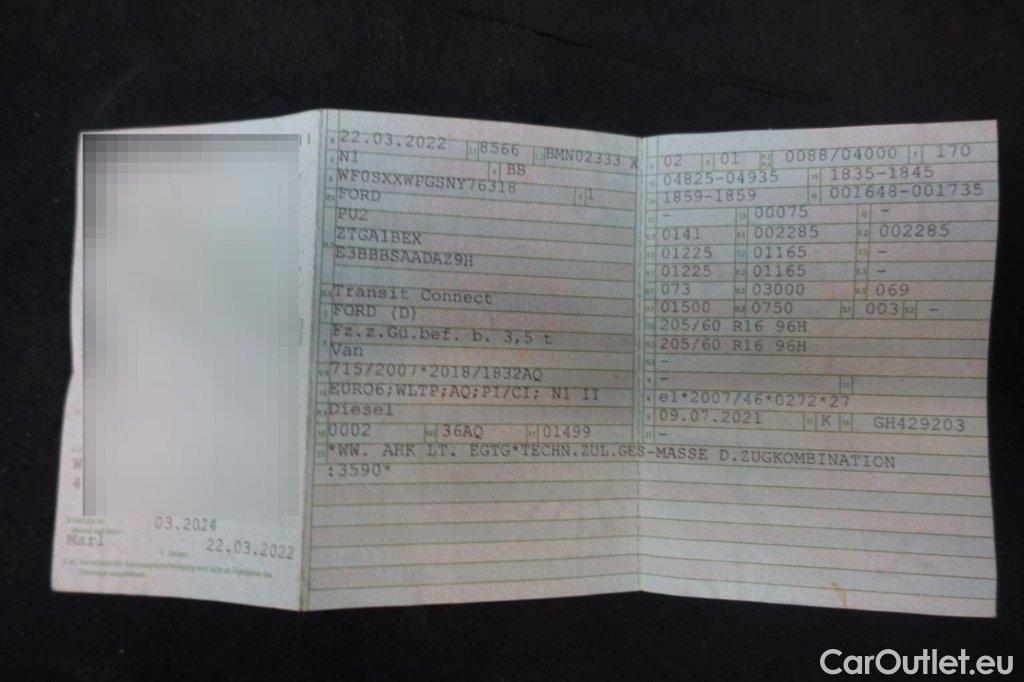 22.03.2022 8566 BMN02333 X
N1 BB
WF0SXXWPGSNY76318
FORD 1
PU2
ZTGA1BEX
E3BBBSAADAZ9H
Transit Connect
FORD (D)
Fz.z.Gü.bef. b. 3,5 t
Van
715/2007*2018/1832AQ
EURO6;WLTP;AQ;PI/CI; N1 II
Diesel
0002 36AQ 01499
*WW. AHK LT. EGTG*TECHN.ZUL.GES-MASSE D.ZUGKOMBINATION
:3590*
02 01 0088/04000 170
04825-04935 1835-1845
1859-1859 001648-001735
- 00075 -
0141 002285 002285
01225 01165 -
01225 01165 -
073 03000 069
01500 0750 003 -
205/60 R16 96H
205/60 R16 96H
-
-
e1*2007/46*0272*27
09.07.2021 K GH429203
-
W
4
03.2024
Marl
22.03.2022
CarOutlet.eu